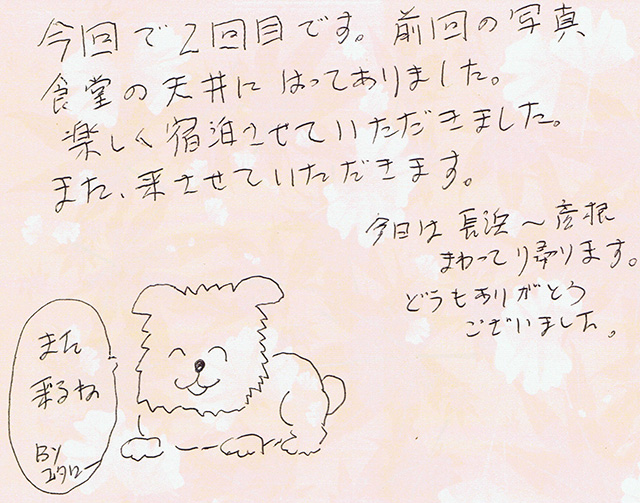 今回で2回目です。前回の写真
食堂の天井にはってありました。
楽しく宿泊させていただきました。
また、来させていただきます。
今日は長浜〜彦根
まわってり帰ります。
どうもありがとう
ございました。
また
来るね
By
ユタロー